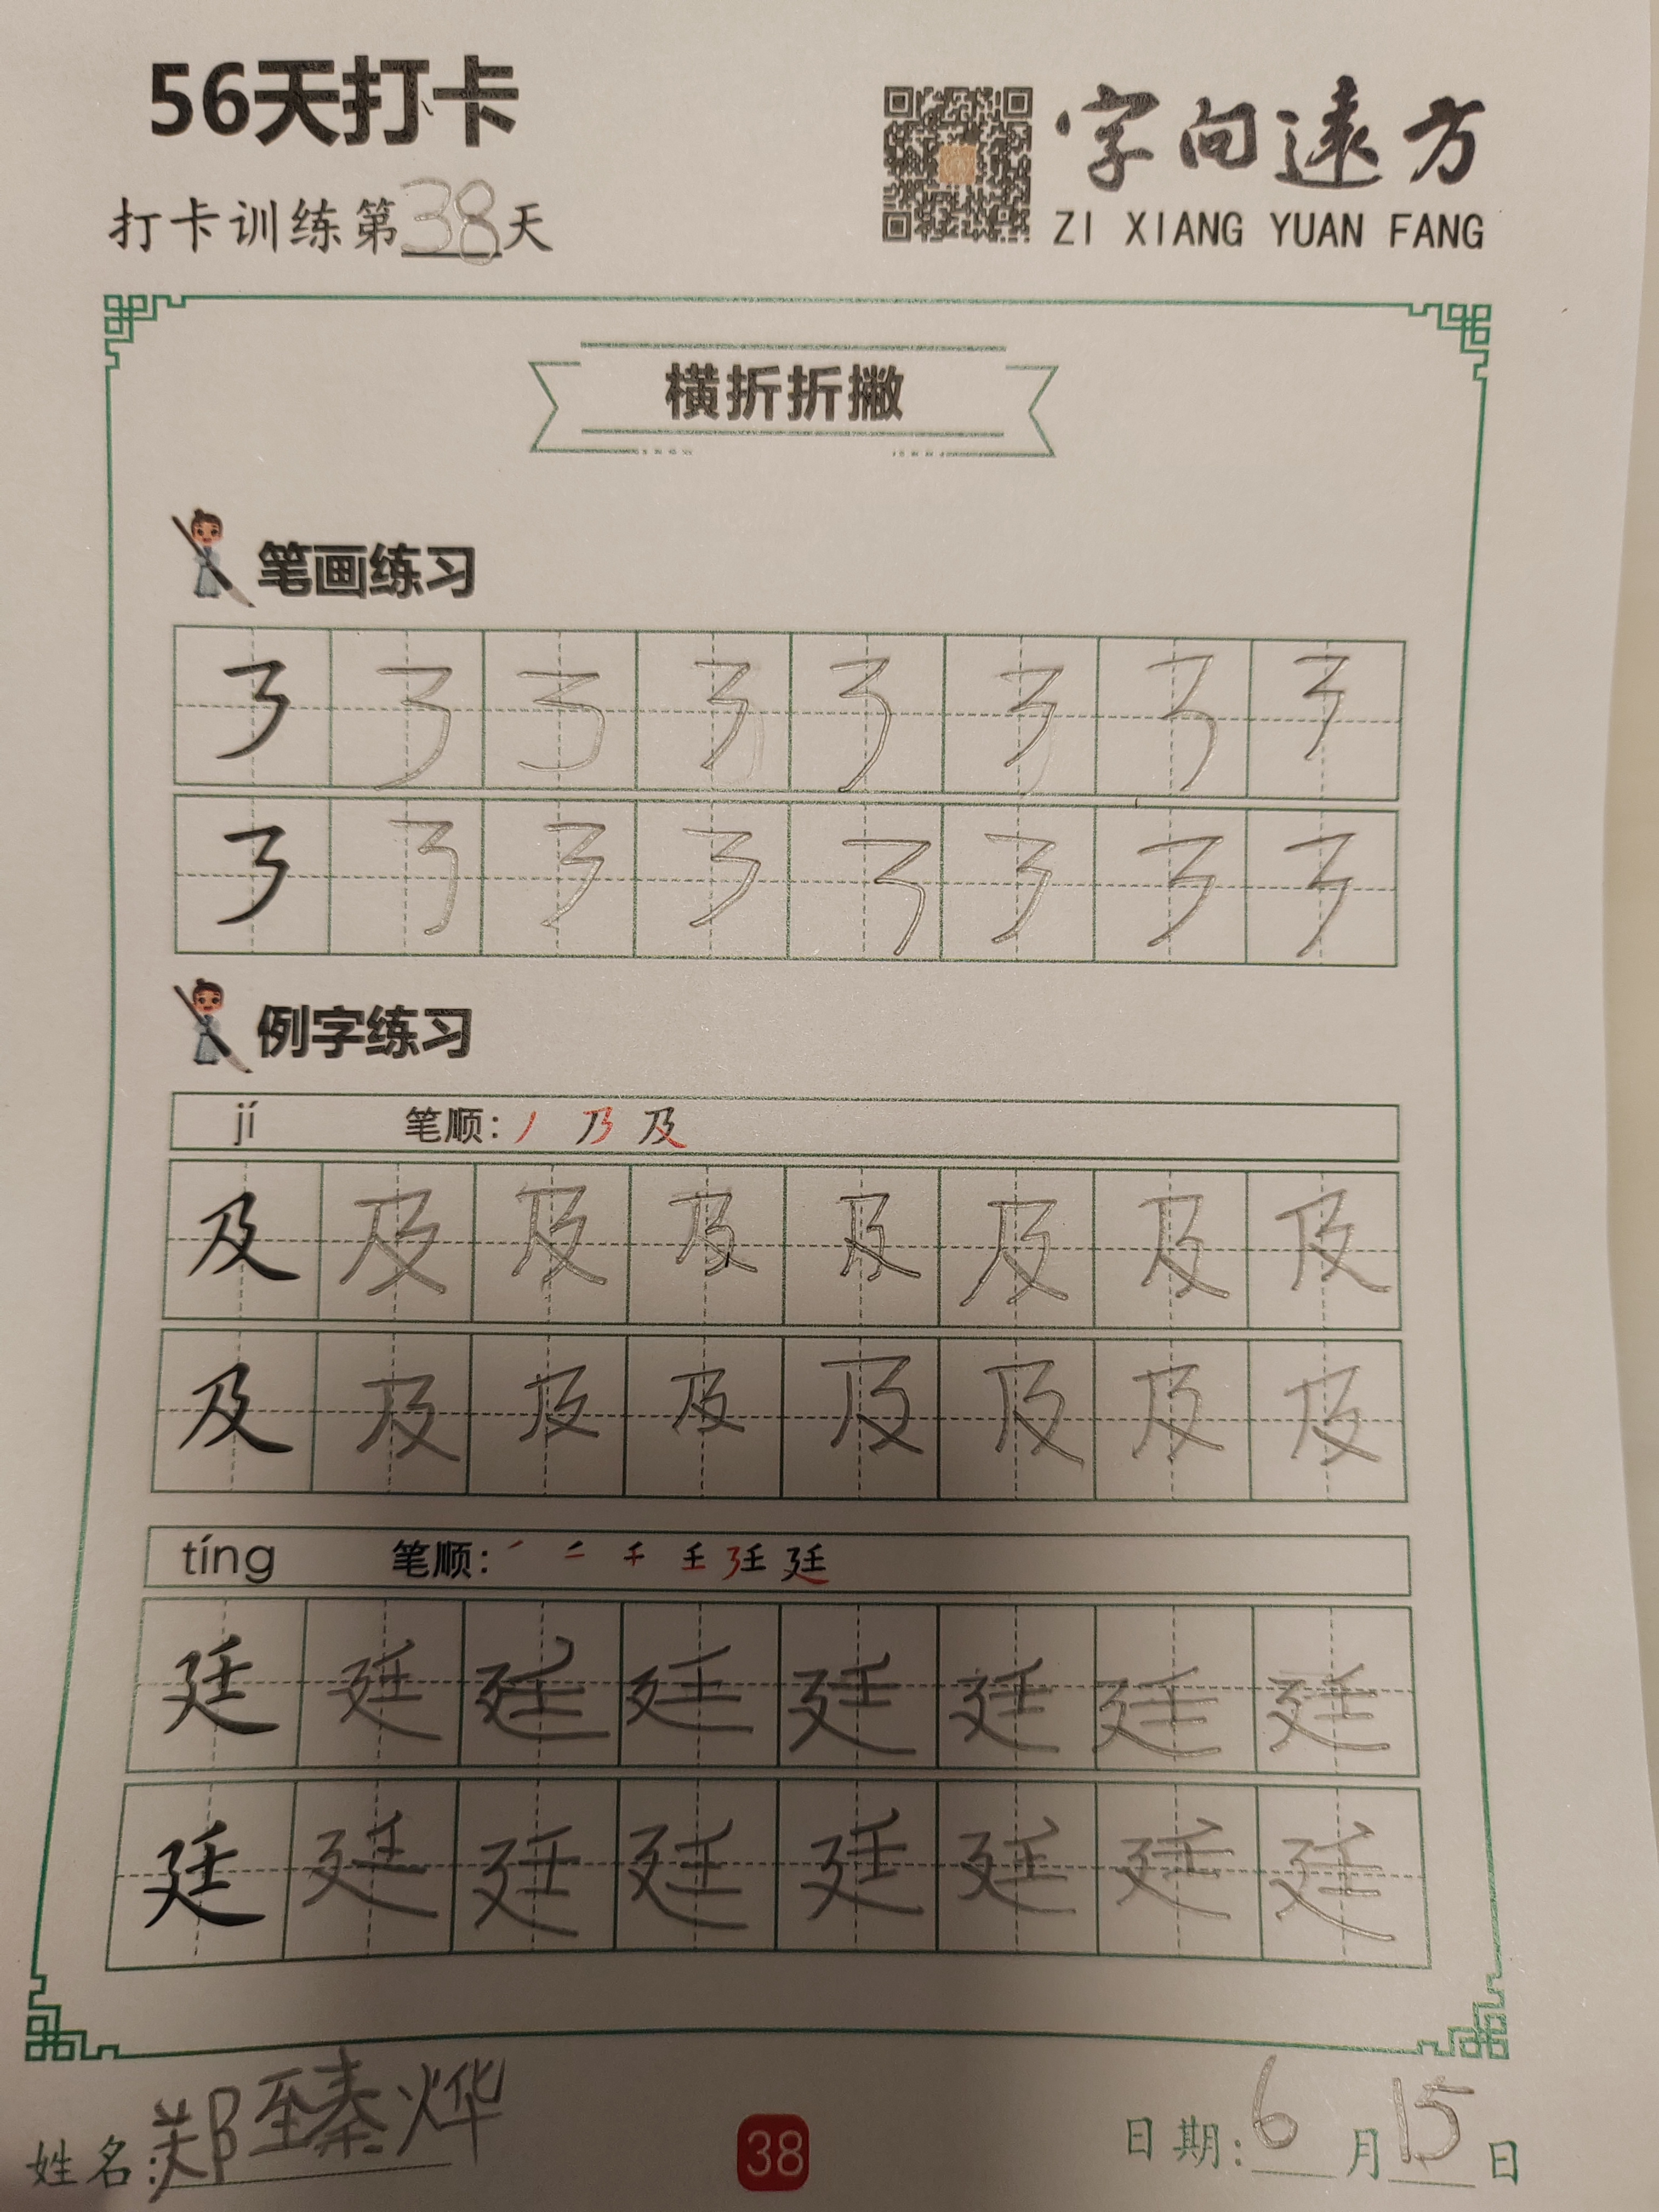 56天打卡
字向遠方
打卡训练第38天
ZI XIANG YUAN FANG
横折折撇
笔画练习
㇋ ㇋ ㇋ ㇋ ㇋ ㇋ ㇋ ㇋
㇋ ㇋ ㇋ ㇋ ㇋ ㇋ ㇋ ㇋
例字练习
jí 笔顺: 丿 乃 及
及 及 及 及 及 及 及 及
及 及 及 及 及 及 及 及
tíng 笔顺:
廷 廷 廷 廷 廷 廷 廷 廷
廷 廷 廷 廷 廷 廷 廷 廷
姓名:郑臻烨
38
日期:6月15日